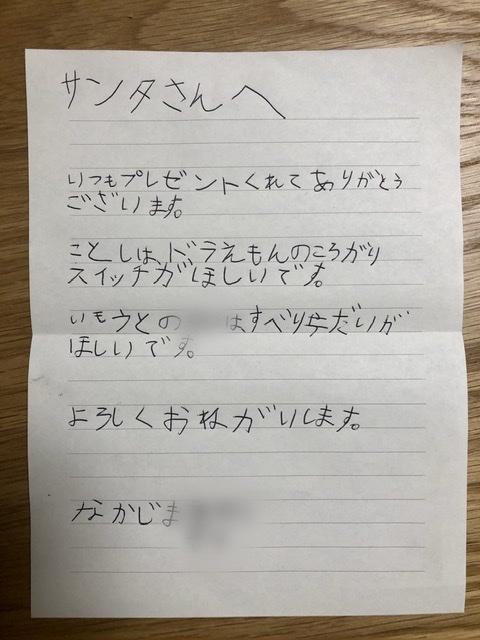 サンタさんへ
いつもプレゼントくれてありがとう
ございます。
ことしは、ドラえもんのころがり
スイッチがほしいです。
いもうとの はすべり台だいが
ほしいです。
よろしくおねがいします。
なかじま